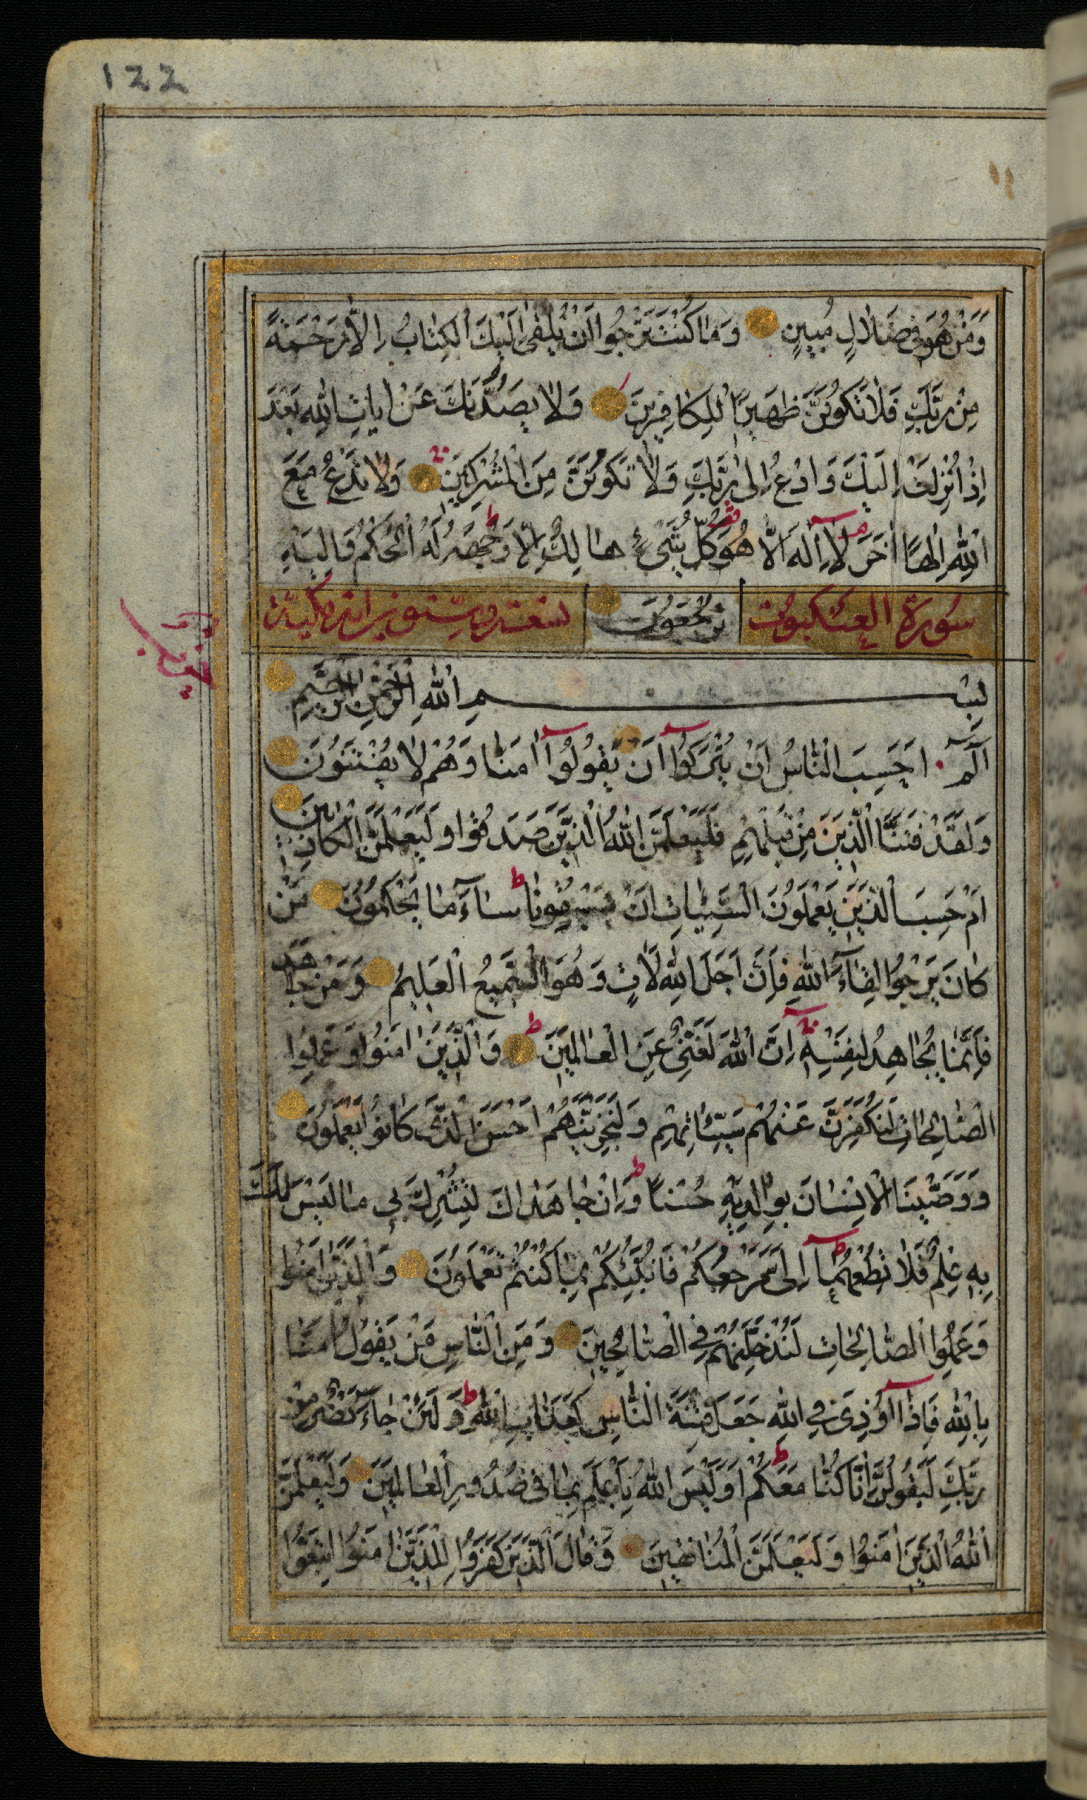 122
وَمَنْ هُوَ فِي ضَلَالٍ مُبِينٍ وَمَا كُنْتَ تَرْجُوا أَنْ يُلْقَىٰ إِلَيْكَ الْكِتَابُ إِلَّا رَحْمَةً
مِنْ رَبِّكَ فَلَا تَكُونَنَّ ظَهِيرًا لِلْكَافِرِينَ وَلَا يَصُدُّنَّكَ عَنْ آيَاتِ اللَّهِ بَعْدَ
إِذْ أُنْزِلَتْ إِلَيْكَ وَادْعُ إِلَىٰ رَبِّكَ وَلَا تَكُونَنَّ مِنَ الْمُشْرِكِينَ وَلَا تَدْعُ مَعَ
اللَّهِ إِلَٰهًا آخَرَ لَا إِلَٰهَ إِلَّا هُوَ كُلُّ شَيْءٍ هَالِكٌ إِلَّا وَجْهَهُ لَهُ الْحُكْمُ وَإِلَيْهِ
سُورَةُ الْعَنْكَبُوتِ تُرْجَعُونَ تسع وستون آية مكية
بِسْمِ اللَّهِ الرَّحْمَٰنِ الرَّحِيمِ
الٓمٓ أَحَسِبَ النَّاسُ أَنْ يُتْرَكُوا أَنْ يَقُولُوا آمَنَّا وَهُمْ لَا يُفْتَنُونَ
وَلَقَدْ فَتَنَّا الَّذِينَ مِنْ قَبْلِهِمْ فَلَيَعْلَمَنَّ اللَّهُ الَّذِينَ صَدَقُوا وَلَيَعْلَمَنَّ الْكَاذِبِينَ
أَمْ حَسِبَ الَّذِينَ يَعْمَلُونَ السَّيِّئَاتِ أَنْ يَسْبِقُونَا سَاءَ مَا يَحْكُمُونَ مَنْ
كَانَ يَرْجُوا لِقَاءَ اللَّهِ فَإِنَّ أَجَلَ اللَّهِ لَآتٍ وَهُوَ السَّمِيعُ الْعَلِيمُ وَمَنْ جَاهَدَ
فَإِنَّمَا يُجَاهِدُ لِنَفْسِهِ إِنَّ اللَّهَ لَغَنِيٌّ عَنِ الْعَالَمِينَ وَالَّذِينَ آمَنُوا وَعَمِلُوا
الصَّالِحَاتِ لَنُكَفِّرَنَّ عَنْهُمْ سَيِّئَاتِهِمْ وَلَنَجْزِيَنَّهُمْ أَحْسَنَ الَّذِي كَانُوا يَعْمَلُونَ
وَوَصَّيْنَا الْإِنْسَانَ بِوَالِدَيْهِ حُسْنًا وَإِنْ جَاهَدَاكَ لِتُشْرِكَ بِي مَا لَيْسَ لَكَ
بِهِ عِلْمٌ فَلَا تُطِعْهُمَا إِلَيَّ مَرْجِعُكُمْ فَأُنَبِّئُكُمْ بِمَا كُنْتُمْ تَعْمَلُونَ وَالَّذِينَ آمَنُوا
وَعَمِلُوا الصَّالِحَاتِ لَنُدْخِلَنَّهُمْ فِي الصَّالِحِينَ وَمِنَ النَّاسِ مَنْ يَقُولُ آمَنَّا
بِاللَّهِ فَإِذَا أُوذِيَ فِي اللَّهِ جَعَلَ فِتْنَةَ النَّاسِ كَعَذَابِ اللَّهِ وَلَئِنْ جَاءَ نَصْرٌ مِنْ
رَبِّكَ لَيَقُولُنَّ إِنَّا كُنَّا مَعَكُمْ أَوَلَيْسَ اللَّهُ بِأَعْلَمَ بِمَا فِي صُدُورِ الْعَالَمِينَ وَلَيَعْلَمَنَّ
اللَّهُ الَّذِينَ آمَنُوا وَلَيَعْلَمَنَّ الْمُنَافِقِينَ وَقَالَ الَّذِينَ كَفَرُوا لِلَّذِينَ آمَنُوا اتَّبِعُوا